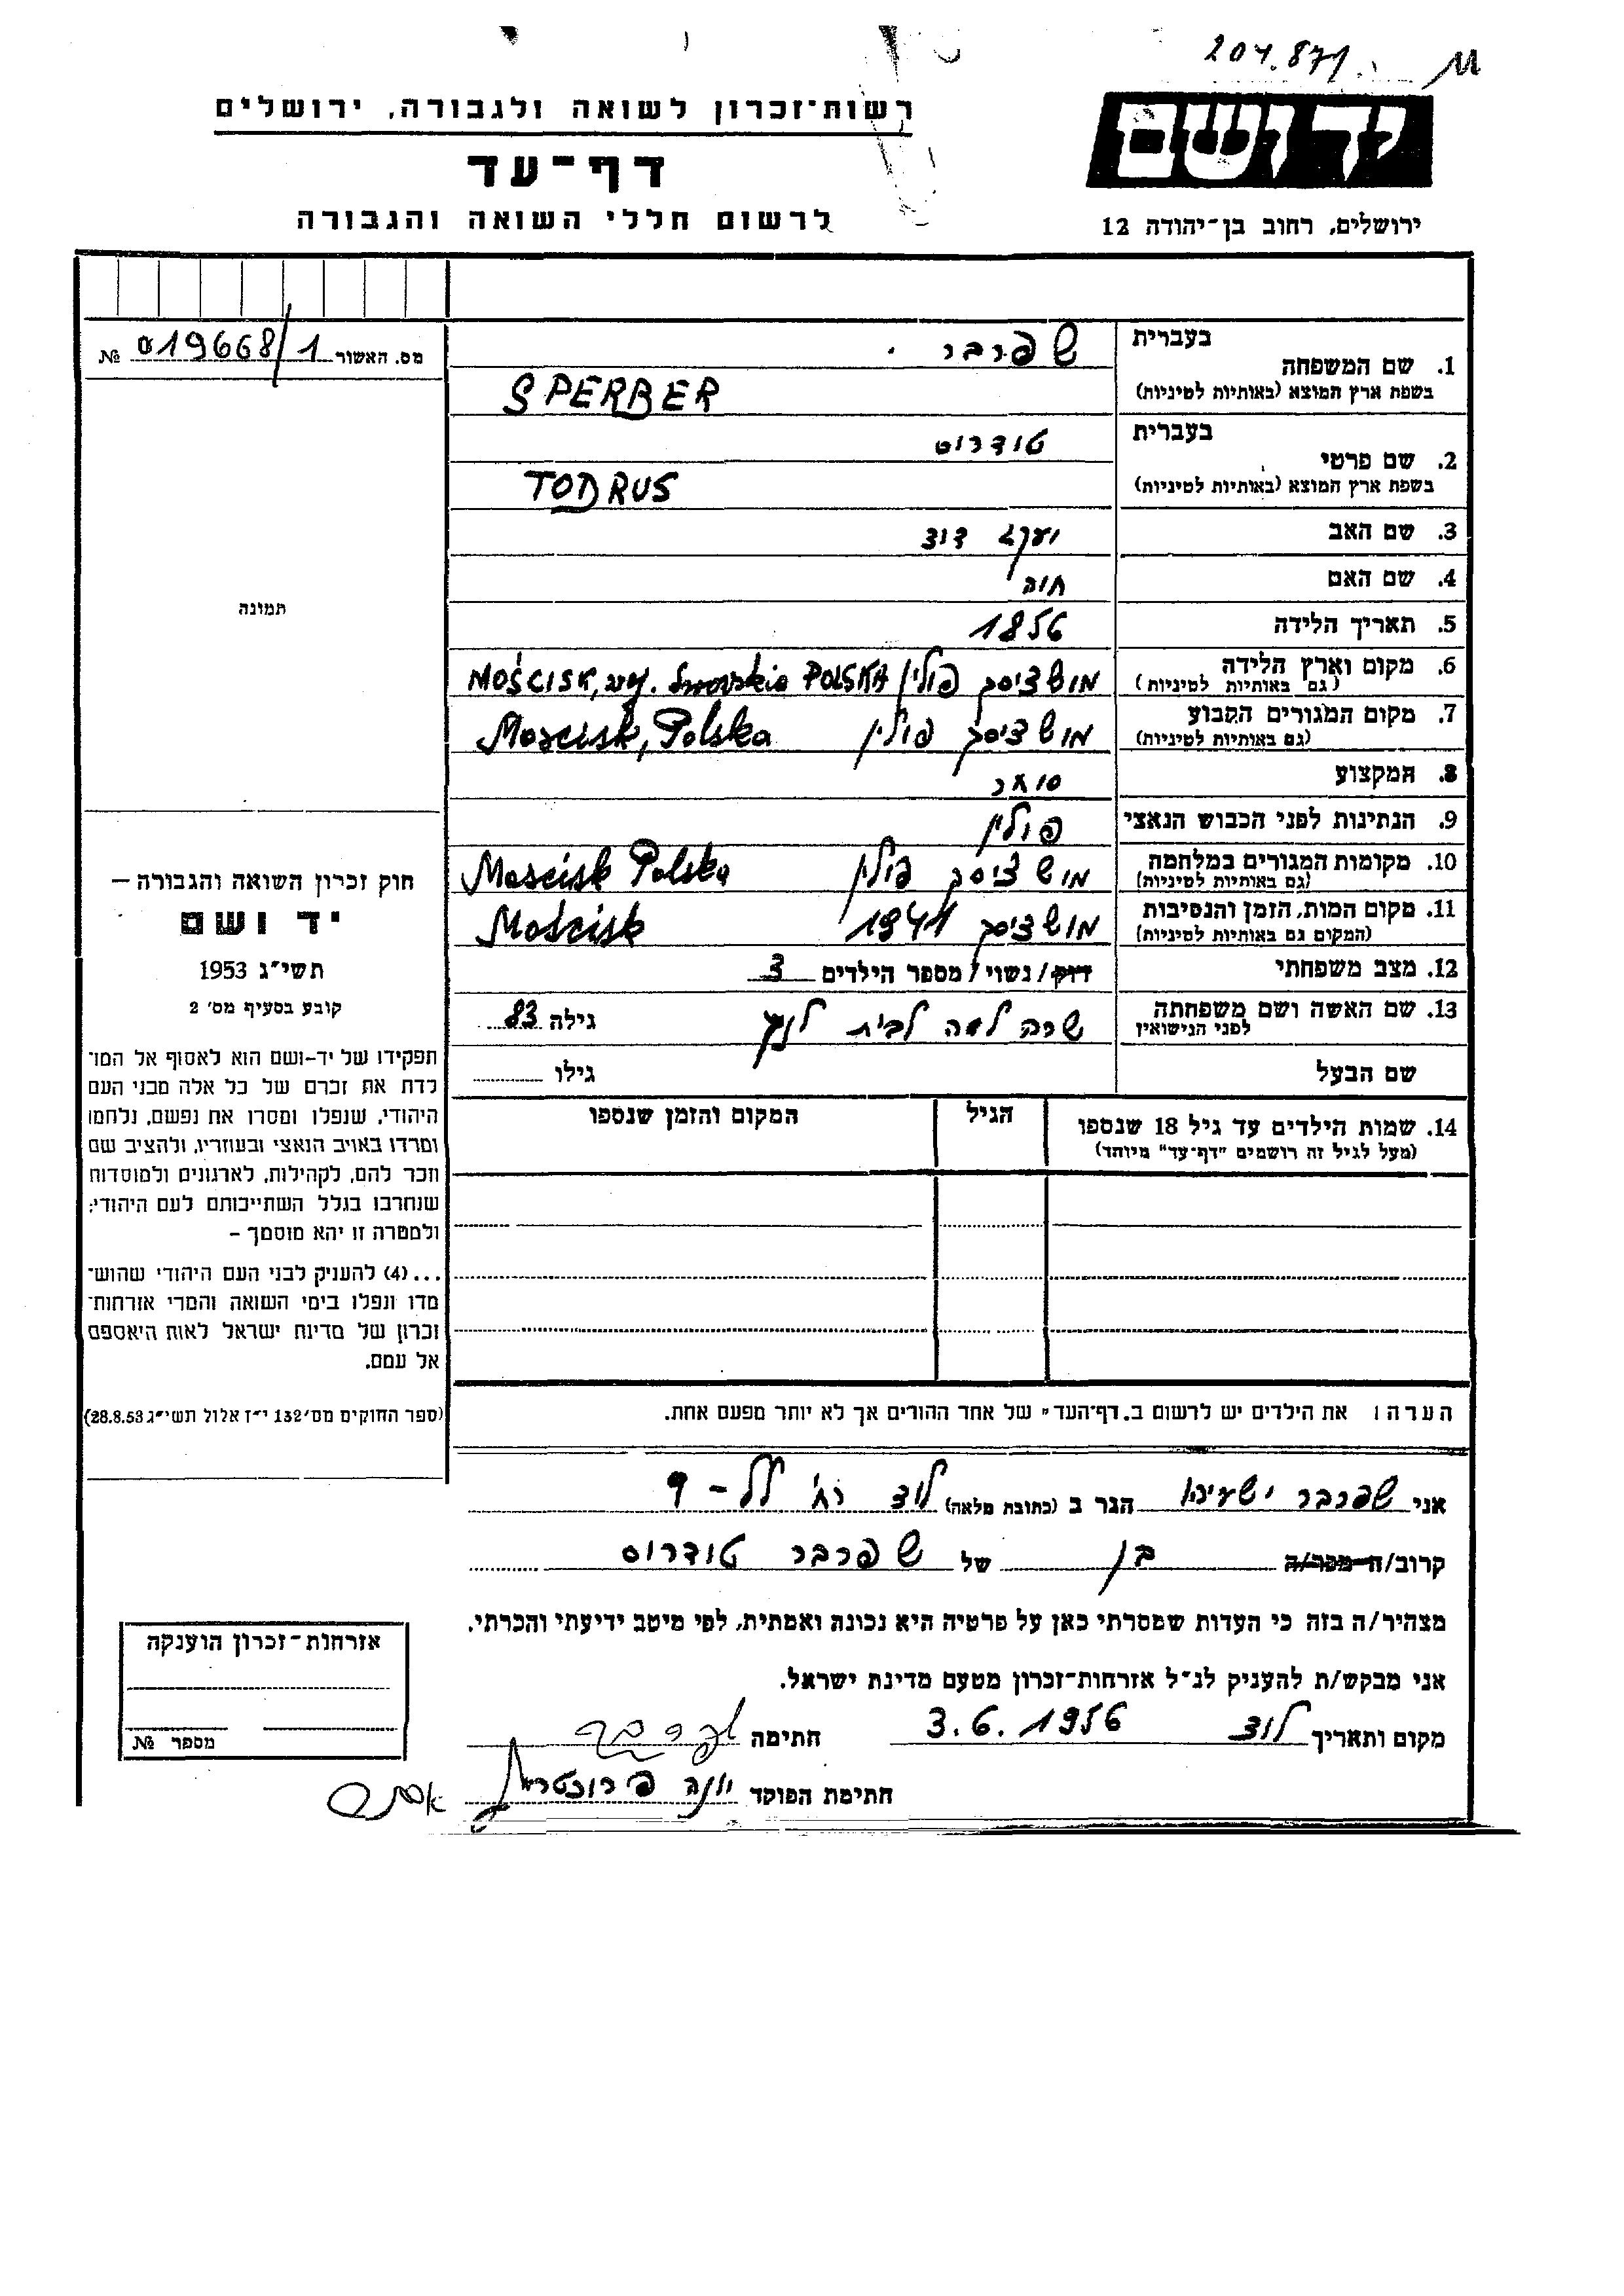 204.871
רשות־זכרון לשואה ולגבורה, ירושלים
יד ושם
דף־עד
לרשום חללי השואה והגבורה
ירושלים, רחוב בן־יהודה 12
מס. האשור 019668/1 №
בעברית שפרבר
1. שם המשפחה
בשפת ארץ המוצא (באותיות לטיניות) SPERBER
בעברית טודרוס
2. שם פרטי
בשפת ארץ המוצא (באותיות לטיניות) TODRUS
3. שם האב יעקב דוד
4. שם האם חוה
5. תאריך הלידה 1856
6. מקום וארץ הלידה מושציסק פולין MOŚCISK, POLSKA
(גם באותיות לטיניות)
7. מקום המגורים הקבוע מושציסק פולין Moscisk, Polska
(גם באותיות לטיניות)
8. המקצוע סוחר
9. הנתינות לפני הכבוש הנאצי פולין
10. מקומות המגורים במלחמה מושציסק פולין Moscisk Polska
(גם באותיות לטיניות)
11. מקום המות, הזמן והנסיבות מושציסק 1941 Mościsk
(המקום גם באותיות לטיניות)
12. מצב משפחתי רווק/נשוי/מספר הילדים 3
13. שם האשה ושם משפחתה שרה לאה לבית גילה 83
לפני הנישואין
שם הבעל גילו
14. שמות הילדים עד גיל 18 שנספו הגיל המקום והזמן שנספו
(מעל לגיל זה רושמים "דף־עד" מיוחד)
הערה: את הילדים יש לרשום ב„דף־העד" של אחד ההורים אך לא יותר מפעם אחת.
תמונה
חוק זכרון השואה והגבורה —
יד ושם
תשי״ג 1953
קובע בסעיף מס׳ 2
תפקידו של יד-ושם הוא לאסוף אל המו־
לדת את זכרם של כל אלה מבני העם
היהודי, שנפלו ומסרו את נפשם, נלחמו
ומרדו באויב הנאצי ובעוזריו, ולהציב שם
וזכר להם, לקהילות, לארגונים ולמוסדות
שנחרבו בגלל השתייכותם לעם היהודי;
ולמטרה זו יהא מוסמך –
...(4) להעניק לבני העם היהודי שהוש־
מדו ונפלו בימי השואה והמרי אזרחות־
זכרון של מדינת ישראל לאות היאספם
אל עמם.
(ספר החוקים מס׳ 132 י״ז אלול תשי״ג 28.8.53)
אני שפרבר ישעיהו הגר ב (כתובת מלאה) לוד רח׳ 9
קרוב/ה מכר/ה בן של שפרבר טודרוס
מצהיר/ה בזה כי העדות שמסרתי כאן על פרטיה היא נכונה ואמתית, לפי מיטב ידיעתי והכרתי.
אני מבקש/ת להעניק לנ״ל אזרחות־זכרון מטעם מדינת ישראל.
מקום ותאריך לוד 3.6.1956 חתימה שפרבר
חתימת הפוקד יונה
אזרחות־זכרון הוענקה
מספר №